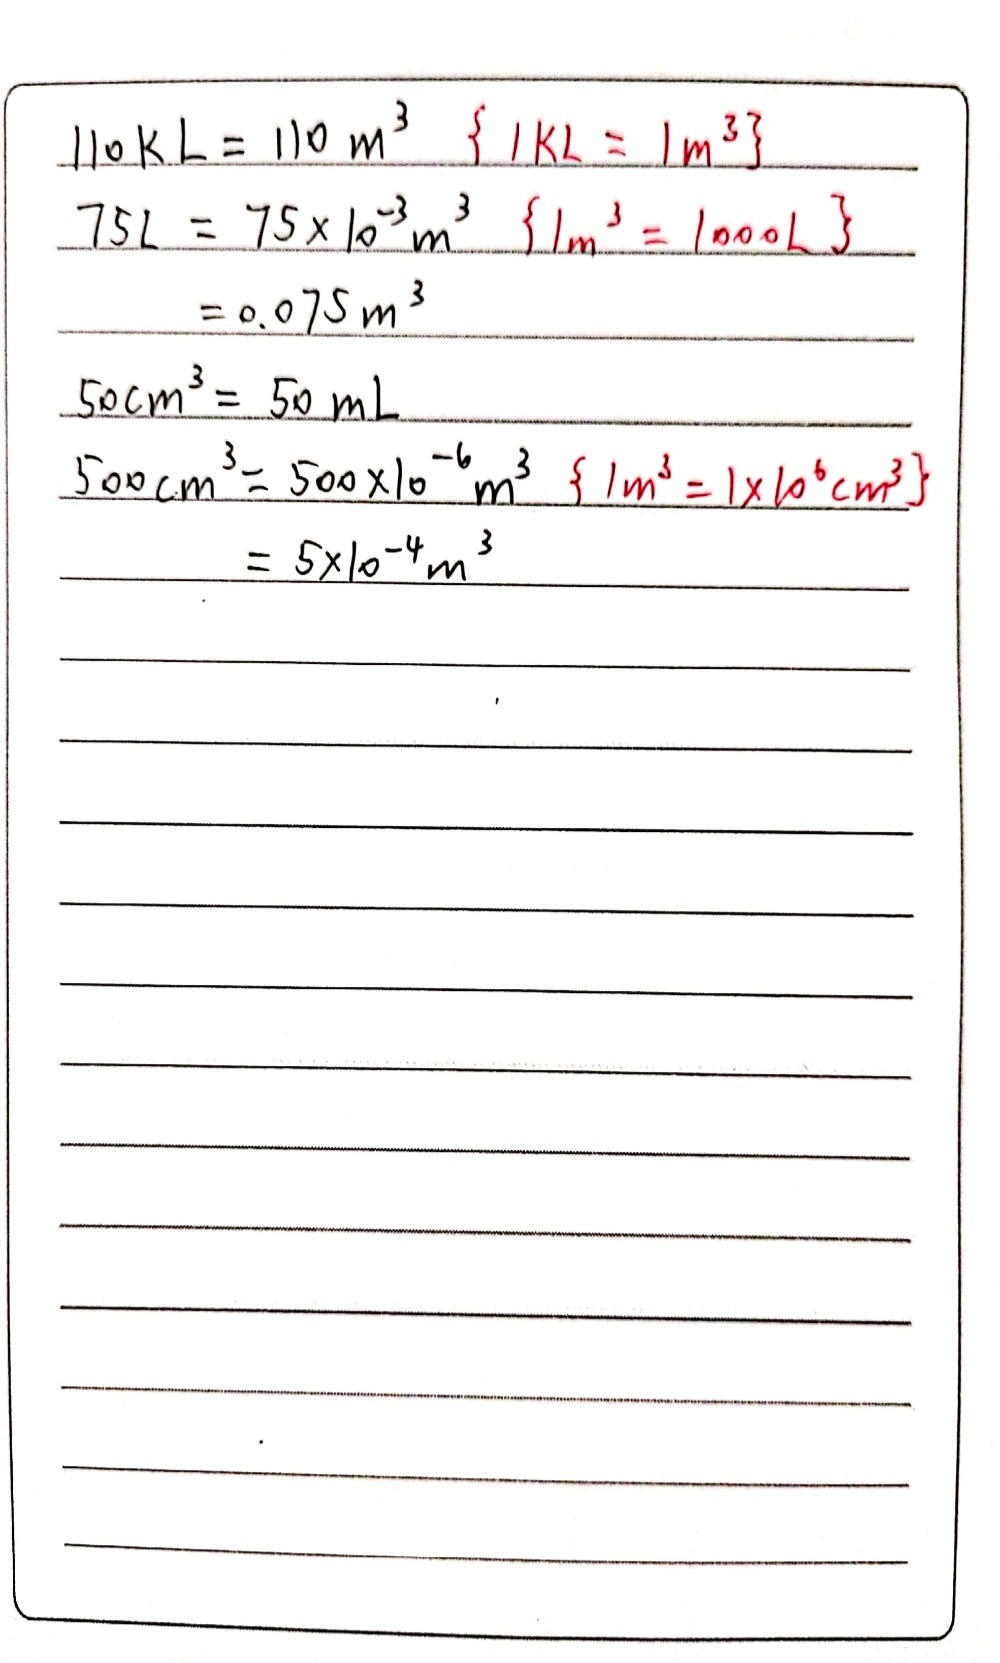 110KL = 110 m³ {1KL = 1m³}
75L = 75×10⁻³m³ {1m³ = 1000L}
= 0.075m³
50cm³ = 50 mL
500cm³ = 500×10⁻⁶m³ {1m³ = 1×10⁶cm³}
= 5×10⁻⁴m³